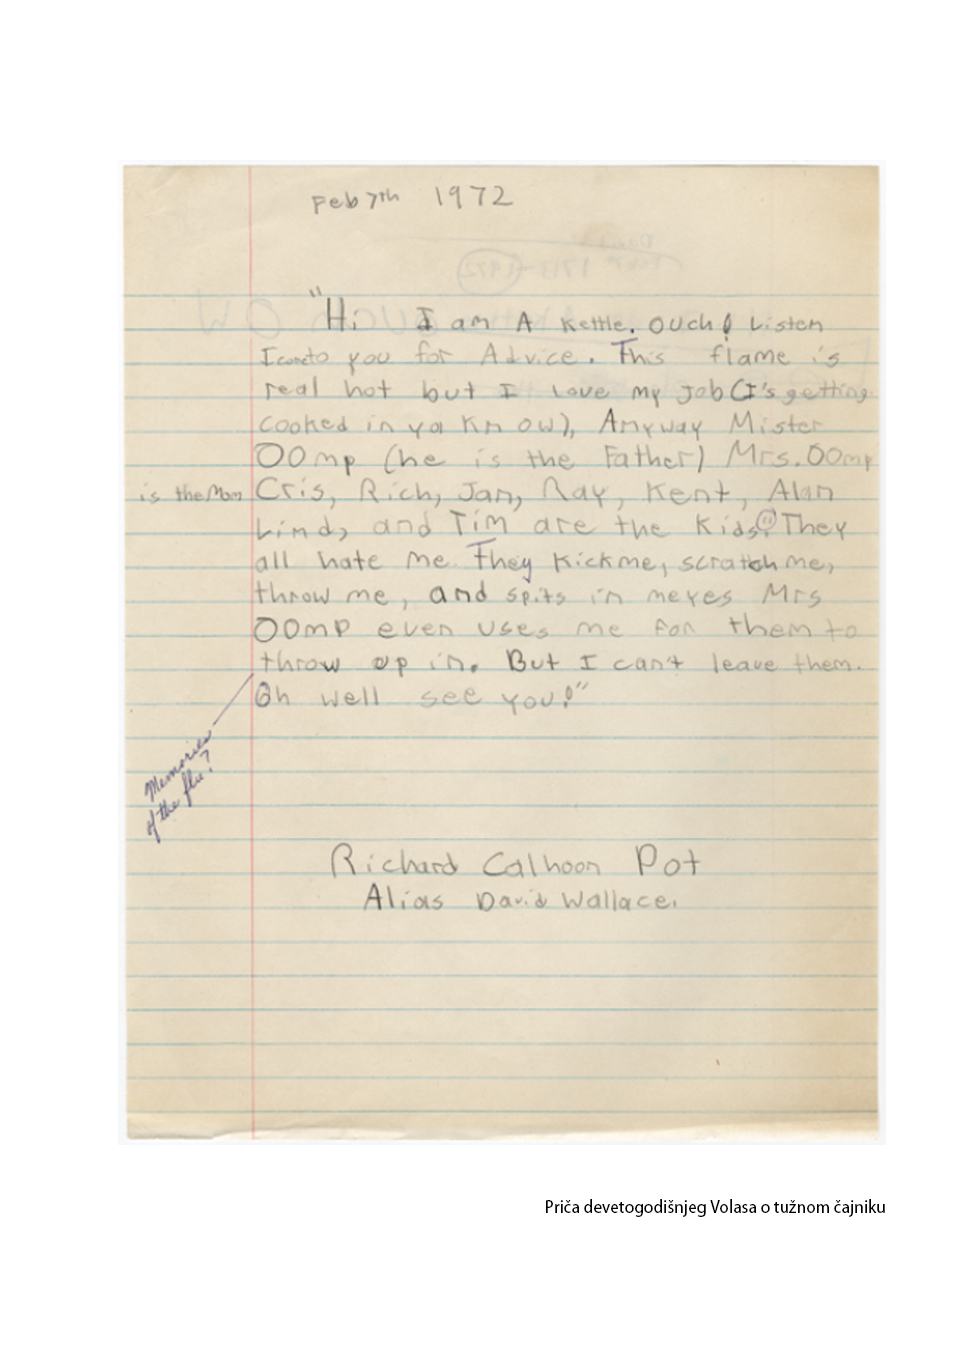 Feb 7th 1972
"Hi I am A kettle. Ouch! Listen
I come to you for Advice. This flame is
real hot but I Love my Job (I's getting
cooked in ya know), Anyway Mister
OOmp (he is the Father) Mrs. OOmp
is the Mom Cris, Rich, Jan, Ray, Kent, Alan
Lind, and Tim are the kids. They
all hate me. They kick me, scratch me,
throw me, and spits in me yes Mrs
OOmp even uses me for them to
throw up in. But I can't leave them.
Oh well see you!"
Memories
of the flu?
Richard Calhoon Pot
Alias David Wallace.
Priča devetogodišnjeg Volasa o tužnom čajniku